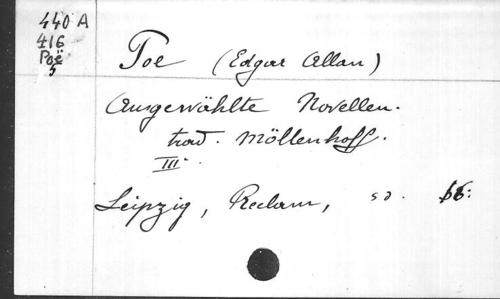 440 A
416
Poë
5
Poe (Edgar Allan)
Ausgewählte Novellen.
trad. Möllenhoff.
III.
Leipzig, Reclam, s d.